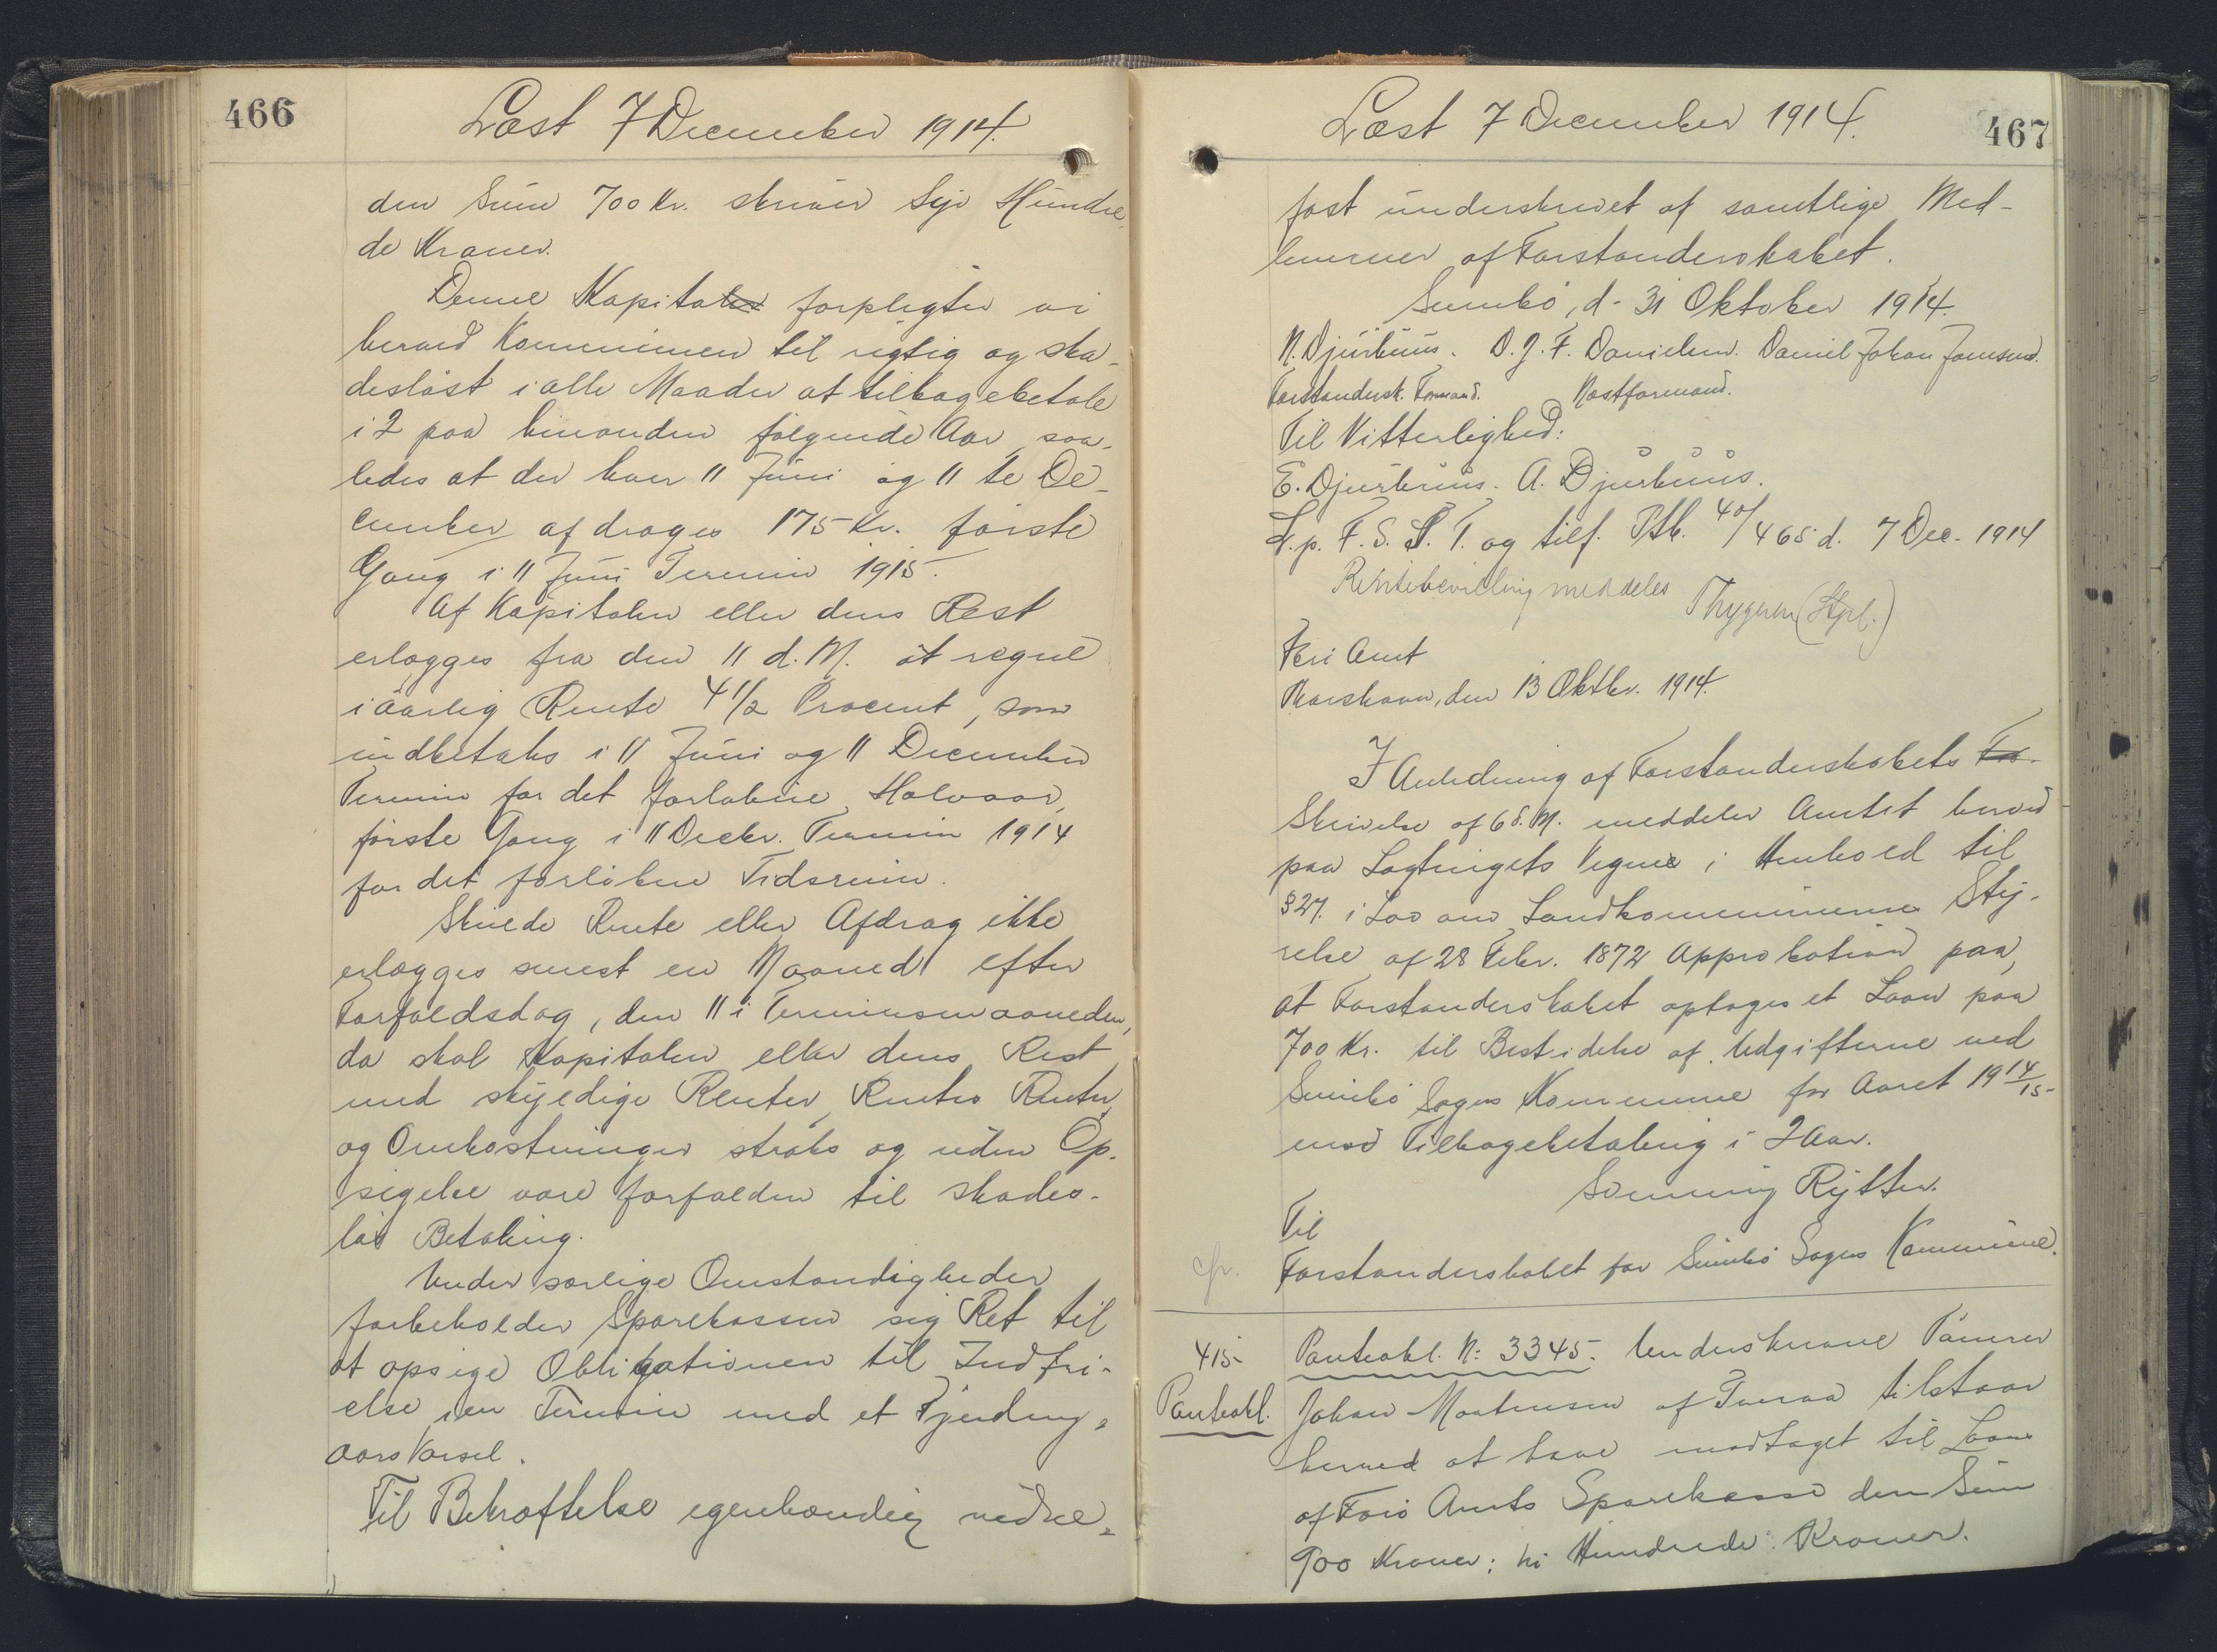 466
Læst 7 December 1914.
den Sum 700 Kr. skriver Syv Hundre
de Kroner.
Denne Kapital forpligter vi
herved Kommunen til rigtig og ska-
desløst i alle Maader at tilbagebetale
i 2 paa hinanden følgende Aar, saa-
ledes at der hver 11 Juni og 11 te De-
cember afdrages 175 Kr. første
Gang i 11 Juni Termin 1915.
Af Kapitalen eller dens Rest
erlægges fra den 11 d. M. at regne
i aarlig Rente 4 1/2 Procent, som
indbetales i 11 Juni og 11 December
Termin for det forløbne Halvaar,
første Gang i 11 Decbr. Termin 1914
for det forløbne Tidsrum.
Skulde Rente eller Afdrag ikke
erlægges senest en Maaned efter
Forfaldsdag, den 11 i Terminsmaaneden,
da skal Kapitalen eller dens Rest
med skyldige Renter, Rentes Renter
og Omkostninger straks og uden Op-
sigelse være forfalden til skades-
løs Betaling.
Under særlige Omstændigheder
forbeholder Sparekassen sig Ret til
at opsige Obligationen til Indfri-
else i en Termin med et Fjerding-
aars Varsel.
Til Bekræftelse egenhændig vedta-
Læst 7 December 1914.
467
fast underskrevet af samtlige Med-
lemmer af Forstanderskabet.
Sumbø, d. 31 Oktober 1914.
N. Djurhuus. D. J. F. Danielsen. Daniel Johan Joensen.
Forstandersk. Formand. Næstformand.
Til Vitterlighed:
E. Djurhuus. A. Djurhuus.
L. p. F. S. S. T. og tilf. Ptb. 40/465 d. 7 Dec. 1914
Rentebevilling meddeles Thygesen (Stpl.)
Færø Amt
Thorshavn, den 13 Oktbr. 1914.
I Anledning af Forstanderskabets
Skrivelse af 6 d. M. meddeler Amtet herved
paa Lagtingets Vegne i Henhold til
§ 27. i Lov om Landkommunernes Sty-
relse af 28 Febr. 1872 Approbation paa,
at Forstanderskabet optager et Laan paa
700 Kr. til Bestridelse af Udgifterne ved
Sumbø Sogns Kommune for Aaret 1914/15-
mod Tilbagebetaling i 2 Aar.
Svenning Rytter.
Til
Forstanderskabet for Sumbø Sogns Kommune.
cfr.
415-
Panteobl.
Panteobl. N: 3345. Underskrevne Tømrer
Johan Mortensen af Tveraa tilstaar
herved at have modtaget til Laans
af Færø Amts Sparekasse den Sum
900 Kroner: ni Hundrede Kroner.